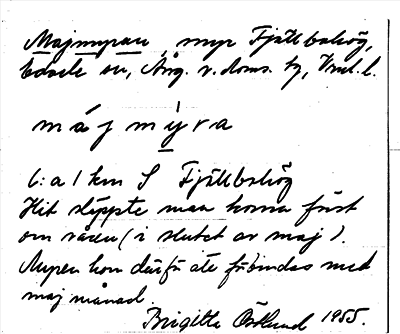 Majmyran, myr Fjällbohög,
sn, Ång. v. doms. tg, Vml. l.
májmýra
C:a 1 km S Fjällbohög
Hit släppte man korna först
om våren (i slutet av maj).
Myren kan därför förbindas med
maj månad.
Brigitta Östlund 1955.